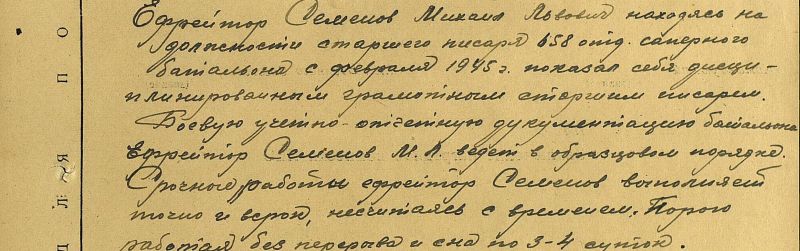 Ефрейтор Семенов Михаил Львович находясь на
должности старшего писаря 658 отд. саперного
батальона с февраля 1945 г. показал себя дисци-
плинированным грамотным старшим писарем.
Боевую учетно-отчетную документацию батальона
Ефрейтор Семенов М.Л. ведет в образцовом порядке.
Срочные работы ефрейтор Семенов выполняет
точно и в срок, несчитаясь с временем. Порою
работая без перерыва и сна по 3-4 суток.
ДЛЯ ПО